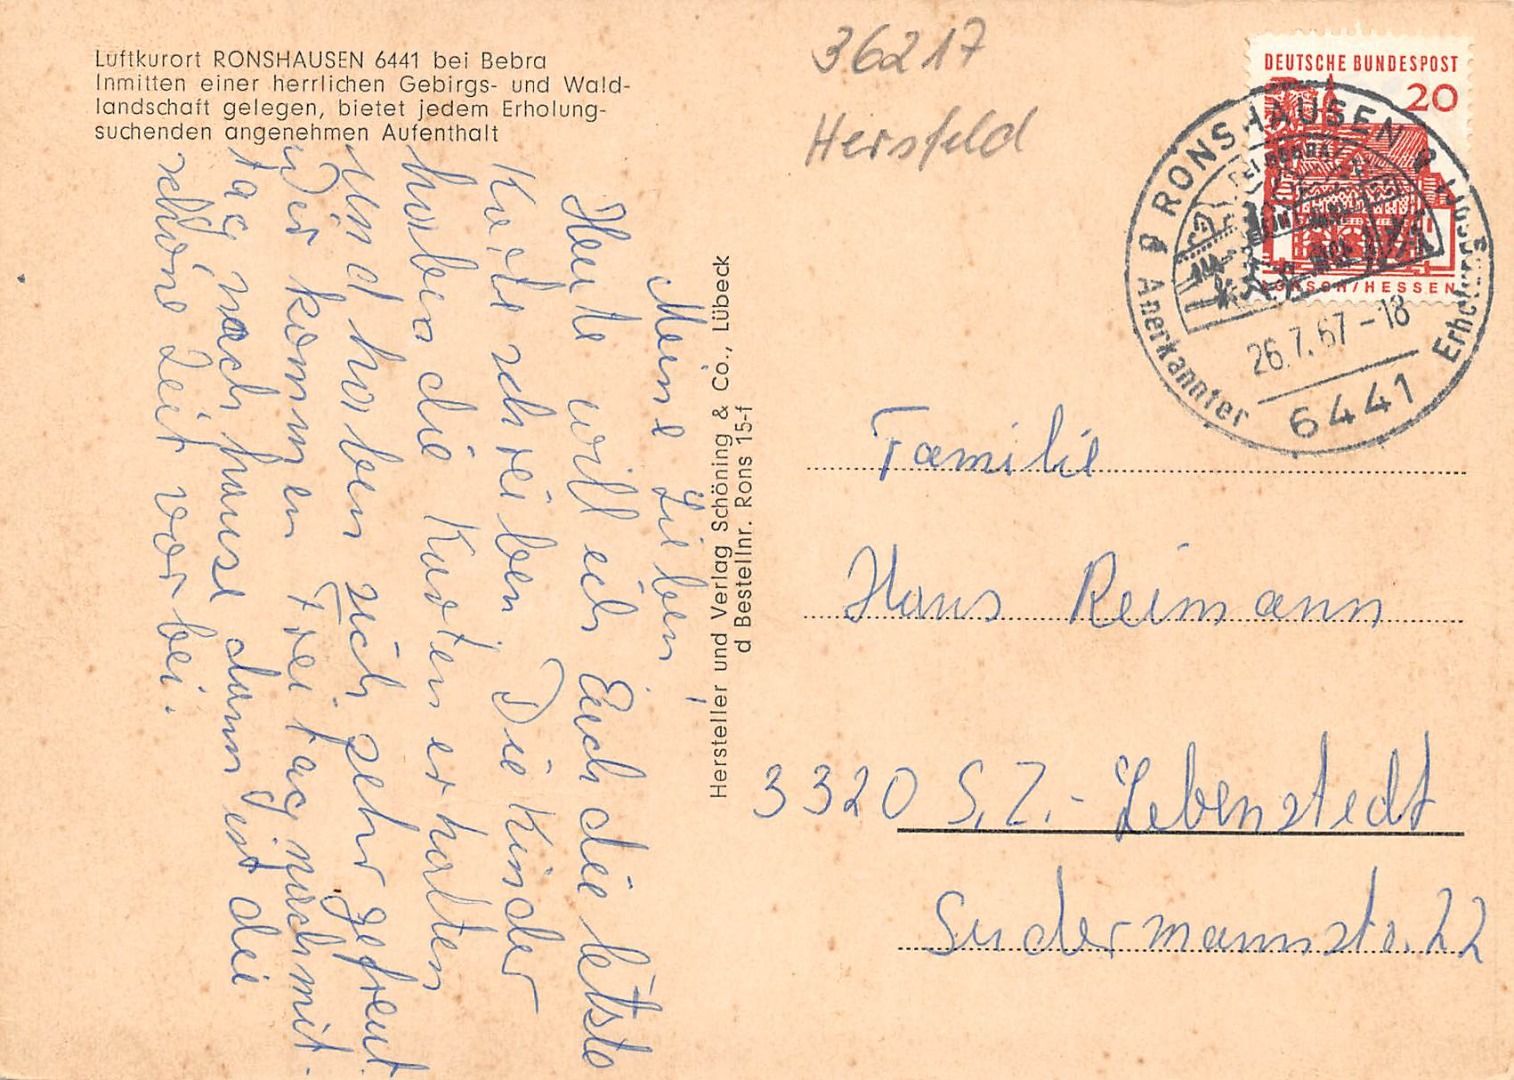 Luftkurort RONSHAUSEN 6441 bei Bebra
Inmitten einer herrlichen Gebirgs- und Wald-
landschaft gelegen, bietet jedem Erholung-
suchenden angenehmen Aufenthalt
36217
Hersfeld
DEUTSCHE BUNDESPOST
20
LORSCH/HESSEN
RONSHAUSEN
26.7.67-18
6441
Anerkannter Erholungs
Meine Lieben!
Heute will ich Euch die letste
Karte schreiben. Die Kinder
haben die Karten erhalten
und haben sich sehr gefreut.
Wir kommen Freitagnachmit
tag nach hause dann ist die
schöne Zeit vorbei.
Hersteller und Verlag Schöning & Co., Lübeck
d Bestellnr. Rons 15-f
Familie
Hans Reimann
3320 S.Z.- Lebenstedt
Sudermannstr. 22